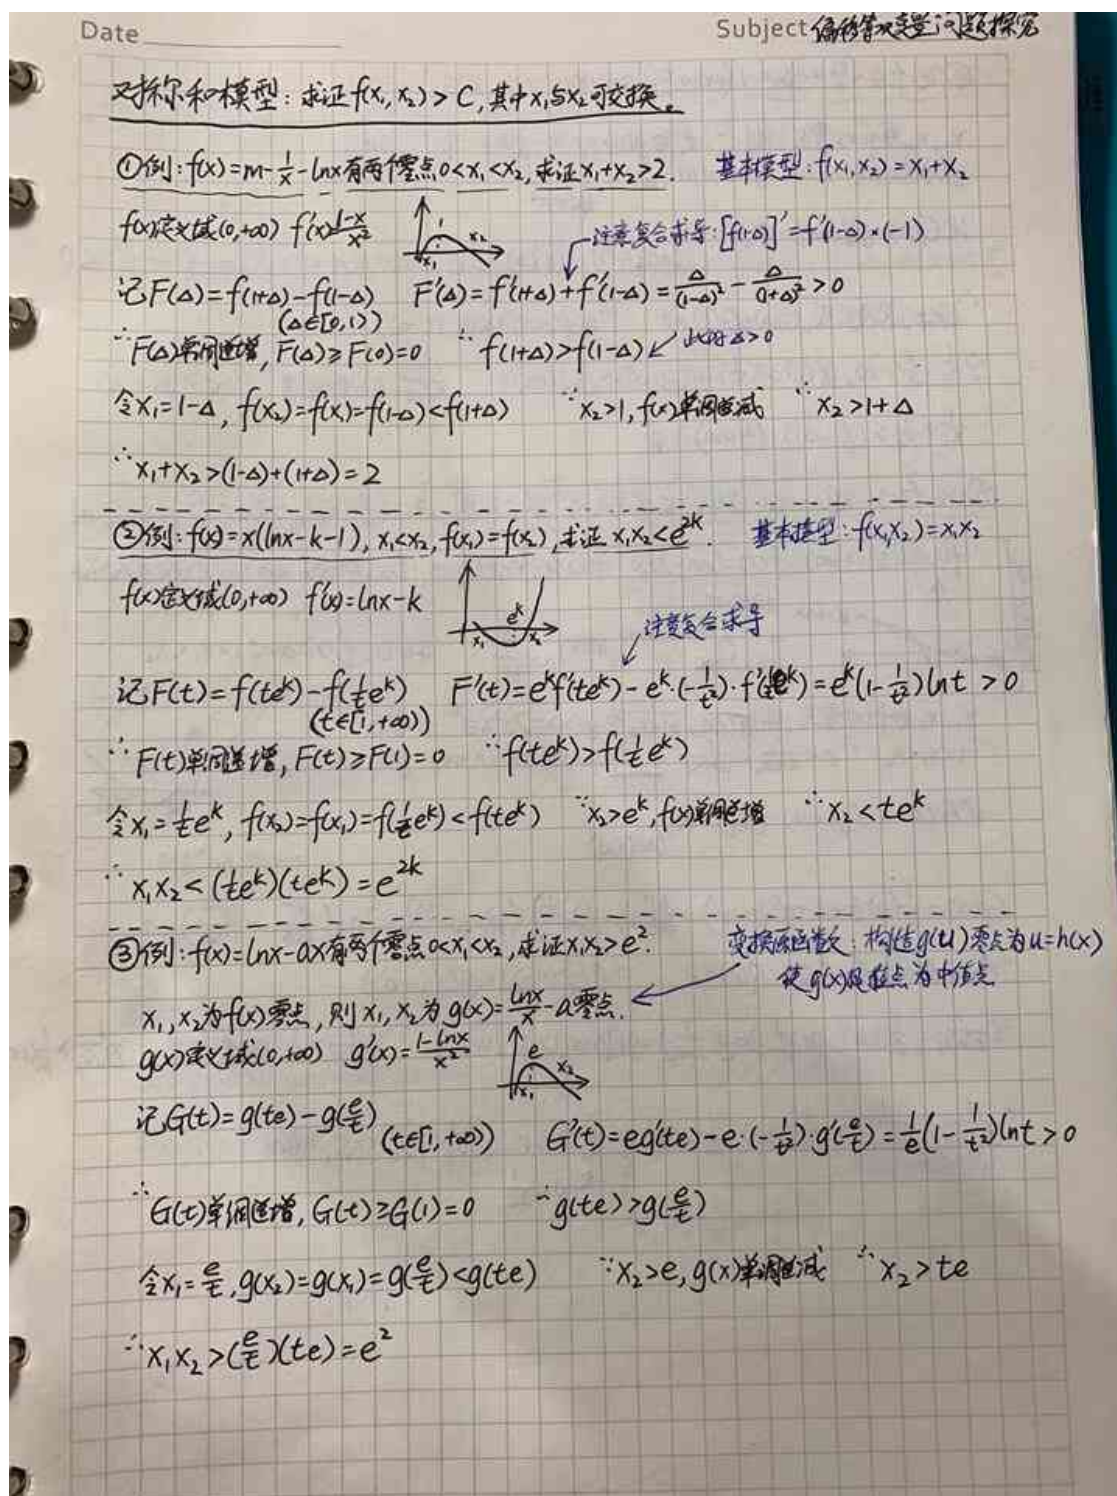 Date
Subject 偏移等双变量问题探究
对称和模型：求证f(x₁,x₂)>C,其中x₁与x₂可交换。
①例：f(x)=m-1/x-lnx有两个零点0<x₁<x₂,求证x₁+x₂>2. 基本模型：f(x₁,x₂)=x₁+x₂
f(x)定义域(0,+∞) f'(x)=(1-x)/x² 1 x₁ x₂ 注意复合求导：[f(1-Δ)]'=f'(1-Δ)×(-1)
记F(Δ)=f(1+Δ)-f(1-Δ) F'(Δ)=f'(1+Δ)+f'(1-Δ)=Δ/(1-Δ)²-Δ/(1+Δ)²>0
(Δ∈[0,1))
∴F(Δ)单调递增,F(Δ)≥F(0)=0 ∴f(1+Δ)>f(1-Δ) 此时Δ>0
令x₁=1-Δ,f(x₂)=f(x₁)=f(1-Δ)<f(1+Δ) ∵x₂>1,f(x)单调递减 ∴x₂>1+Δ
∴x₁+x₂>(1-Δ)+(1+Δ)=2
②例：f(x)=x(lnx-k-1),x₁<x₂,f(x₁)=f(x₂),求证x₁x₂<e²ᵏ. 基本模型：f(x₁x₂)=x₁x₂
f(x)定义域(0,+∞) f'(x)=lnx-k eᵏ x₁ x₂ 注意复合求导
记F(t)=f(teᵏ)-f(1/t eᵏ) F'(t)=eᵏf'(teᵏ)-eᵏ·(-1/t²)·f'(1/t eᵏ)=eᵏ(1-1/t²)lnt>0
(t∈[1,+∞))
∴F(t)单调递增,F(t)≥F(1)=0 ∴f(teᵏ)>f(1/t eᵏ)
令x₁=1/t eᵏ,f(x₂)=f(x₁)=f(1/t eᵏ)<f(teᵏ) ∵x₂>eᵏ,f(x)单调递增 ∴x₂<teᵏ
∴x₁x₂<(1/t eᵏ)(teᵏ)=e²ᵏ
③例：f(x)=lnx-ax有两个零点0<x₁<x₂,求证x₁x₂>e². 变换原函数：构造g(u)零点为u=h(x)
使g(x)极值点为中值点
x₁,x₂为f(x)零点,则x₁,x₂为g(x)=lnx/x-a零点.
g(x)定义域(0,+∞) g'(x)=(1-lnx)/x² e x₁ x₂
记G(t)=g(te)-g(e/t) (t∈[1,+∞)) G'(t)=eg'(te)-e·(-1/t²)·g'(e/t)=1/e(1-1/t²)lnt>0
∴G(t)单调递增,G(t)≥G(1)=0 ∴g(te)>g(e/t)
令x₁=e/t,g(x₂)=g(x₁)=g(e/t)<g(te) ∵x₂>e,g(x)单调递减 ∴x₂>te
∴x₁x₂>(e/t)(te)=e²